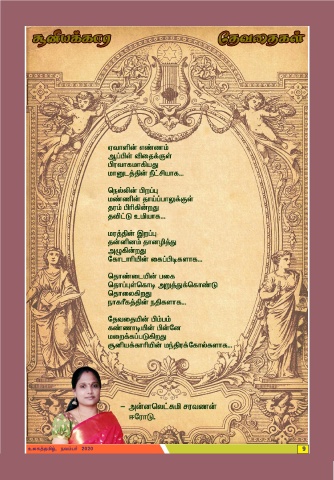 சூனியக்கார தேவதைகள்
ஏவாளின் எண்ணம்
ஆப்பிள் விதைக்குள்
பிரவாகமாகியது
மானுடத்தின் நீட்சியாக...
நெல்லின் பிறப்பு
மண்ணின் தாய்ப்பாலுக்குள்
தரம் பிரிகின்றது
தவிட்டு உமியாக...
மரத்தின் இறப்பு
தன்னினம் தானழித்து
அழுகின்றது
கோடாரியின் கைப்பிடிகளாக...
தொண்டையின் பகை
தொப்புள்கொடி அறுத்துக்கொண்டு
தொலைகிறது
நாகரீகத்தின் நதிகளாக...
தேவதையின் பிம்பம்
கண்ணாடியின் பின்னே
மறைக்கப்படுகிறது
சூனியக்காரியின் மந்திரக்கோல்களாக...
- அன்னலெட்சுமி சரவணன்
ஈரோடு.
நவம்பர் 2020 9